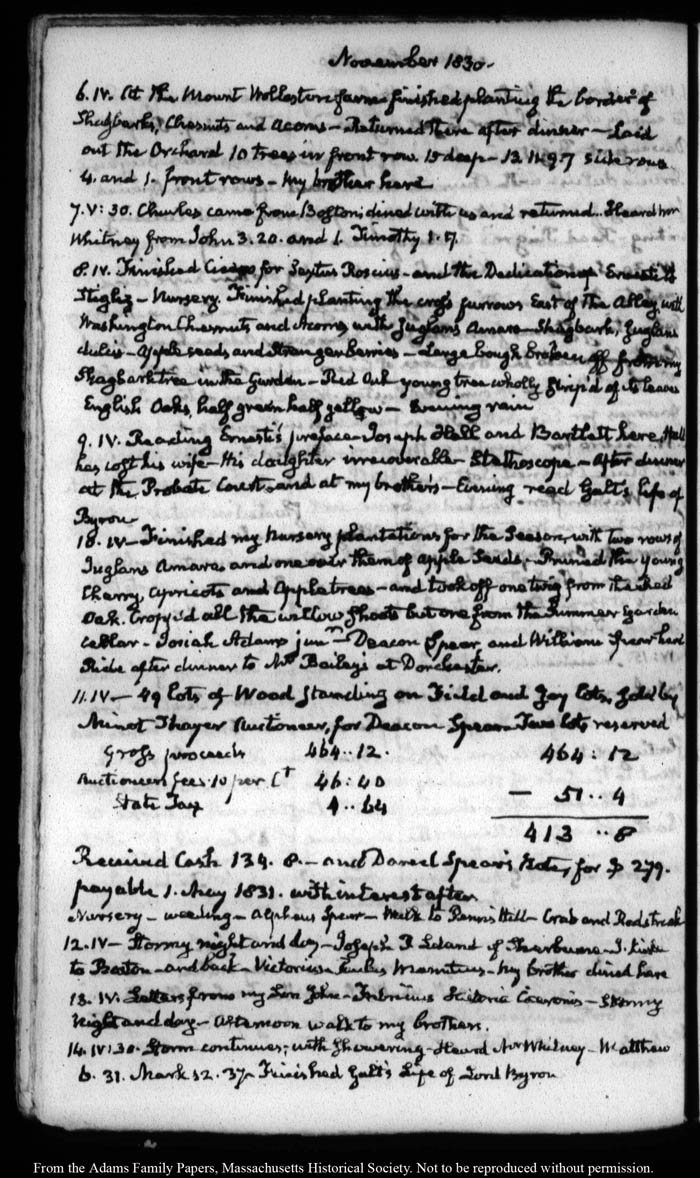 November 1830.
6. IV. At the Mount Wollaston farm finished planting the border of
Shagbarks, Chesnuts and Acorns – Returned there after dinner – Laid
out the Orchard 10 trees in front row 15 deep – 13. 11. 9 7 side rows
4. and 1. front rows – My brother here
7. V: 30. Charles came from Boston; dined with us and returned.. Heard Mr
Whitney from John 3. 20. and 1. Timothy 1. 17.
8. IV. Finished Cicero for Sextus Roscius – and the Dedication of Ernesti to
Stiglitz – Nursery. Finished planting the cross furrows East of the Alley with
Washington Chesnuts and Acorns, with Juglans Amara – Shagbark, Juglans
dulcis – Apple seeds and – Large bough broken off from my
Shagbark tree in the Garden – Red Oak young tree wholly strip'd of its leaves
English Oaks, half green half yellow – Evening rain
9. IV. Reading Ernesti's preface – Joseph Hall and Bartlett here, Hall
has lost his wife – His daughter irrecoverable – Stethoscope – After dinner
at the Probate Court and at my brother's – Evening read Galt's life of
Byron
10. IV – Finished my Nursery plantations for the Season, with two rows of
Juglans Amara and one over them of apple Seeds, – Pruned the young
Cherry, Apricots and Apple trees – and took off one twig from the Red
Oak. Cropp'd all the willow shoots but one from the Summer Garden
Cellar – Josiah Adams junr Deacon Spear, and William Spear here
Ride after dinner to Mr Bailey's at Dorchester.
11. IV – 49 lots of Wood standing on Field and Gay lots, sold by
Minot Thayer Auctioneer, for Deacon Spear Two lots reserved
Gross proceeds 464..12. 464: 12
Auctioneers fees. 10 per Ct 46: 40 – 51..4
State Tax 4..64
413 ..8
Received Cash 134. 8. – and Daniel Spear's Note, for $ 279.
payable 1. May 1831. with interest after
Nursery – weeding – Alpheus Spear – Walk to Penns Hill – Crab and Redstreak
12. IV – Stormy night and day – Joseph P Leland of Sherburne
to Boston – and back – Victorius Manutius – My brother dined here
13. IV. Letters from my Son John – Fabricius Historia Ciceronis – Stormy
Night and day – Afternoon walk to my brothers.
14. IV: 30. Storm continues; with Showering – Heard Mr Whitney – Matthew
6. 31. Mark 12. 37. Finished Galt's Life of Lord Byron
From the Adams Family Papers, Massachusetts Historical Society. Not to be reproduced without permission.